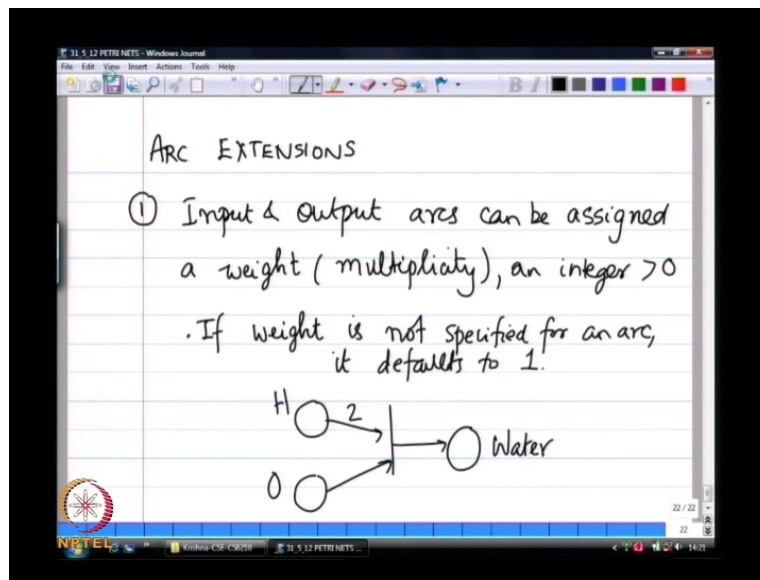 31_5_12 PETRI NETS - Windows Journal
File Edit View Insert Actions Tools Help
B I
ARC EXTENSIONS
① Input & output arcs can be assigned
a weight (multiplicity), an integer >0
. If weight is not specified for an arc,
it defaults to 1.
H 2
Water
O
22 / 22
22
NPTEL
Krishna-CSE-CS6210 31_5_12 PETRI NETS ... 14:21